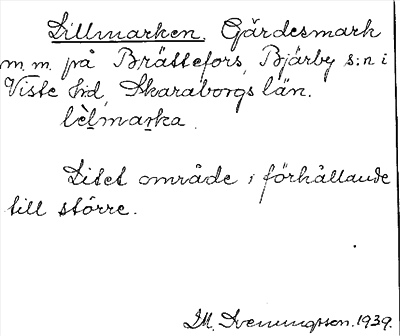 Lillmarken. Gärdesmark
m.m. på Brättefors, Bjärby s:n i
Viste hd, Skaraborgs län.
lèlmarka.
Litet område i förhållande
till större.
M. Sveningsson. 1939.